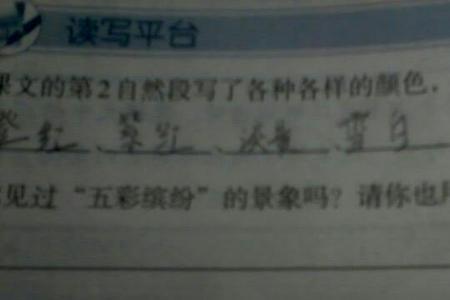 读写平台
课文的第2自然段写了各种各样的颜色，
红、紫红、淡黄、雪白
见过“五彩缤纷”的景象吗？请你也用